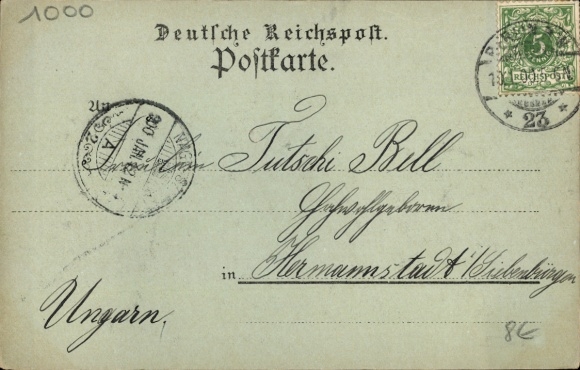 1000
Deutsche Reichspost.
Postkarte.
5
REICHSPOST
23
An
Fräulein Tutschi Bell
Hochwohlgeboren
in Hermannstadt / Siebenbürgen
Ungarn.
900 JAN.
A
8€